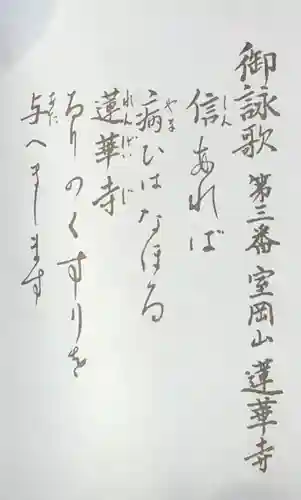 御詠歌 第三番 室岡山 蓮華寺
しん
信あれば
やま
病ひはなほる
れんげいじ
蓮華寺
るりのくすりを
あた
与へまします